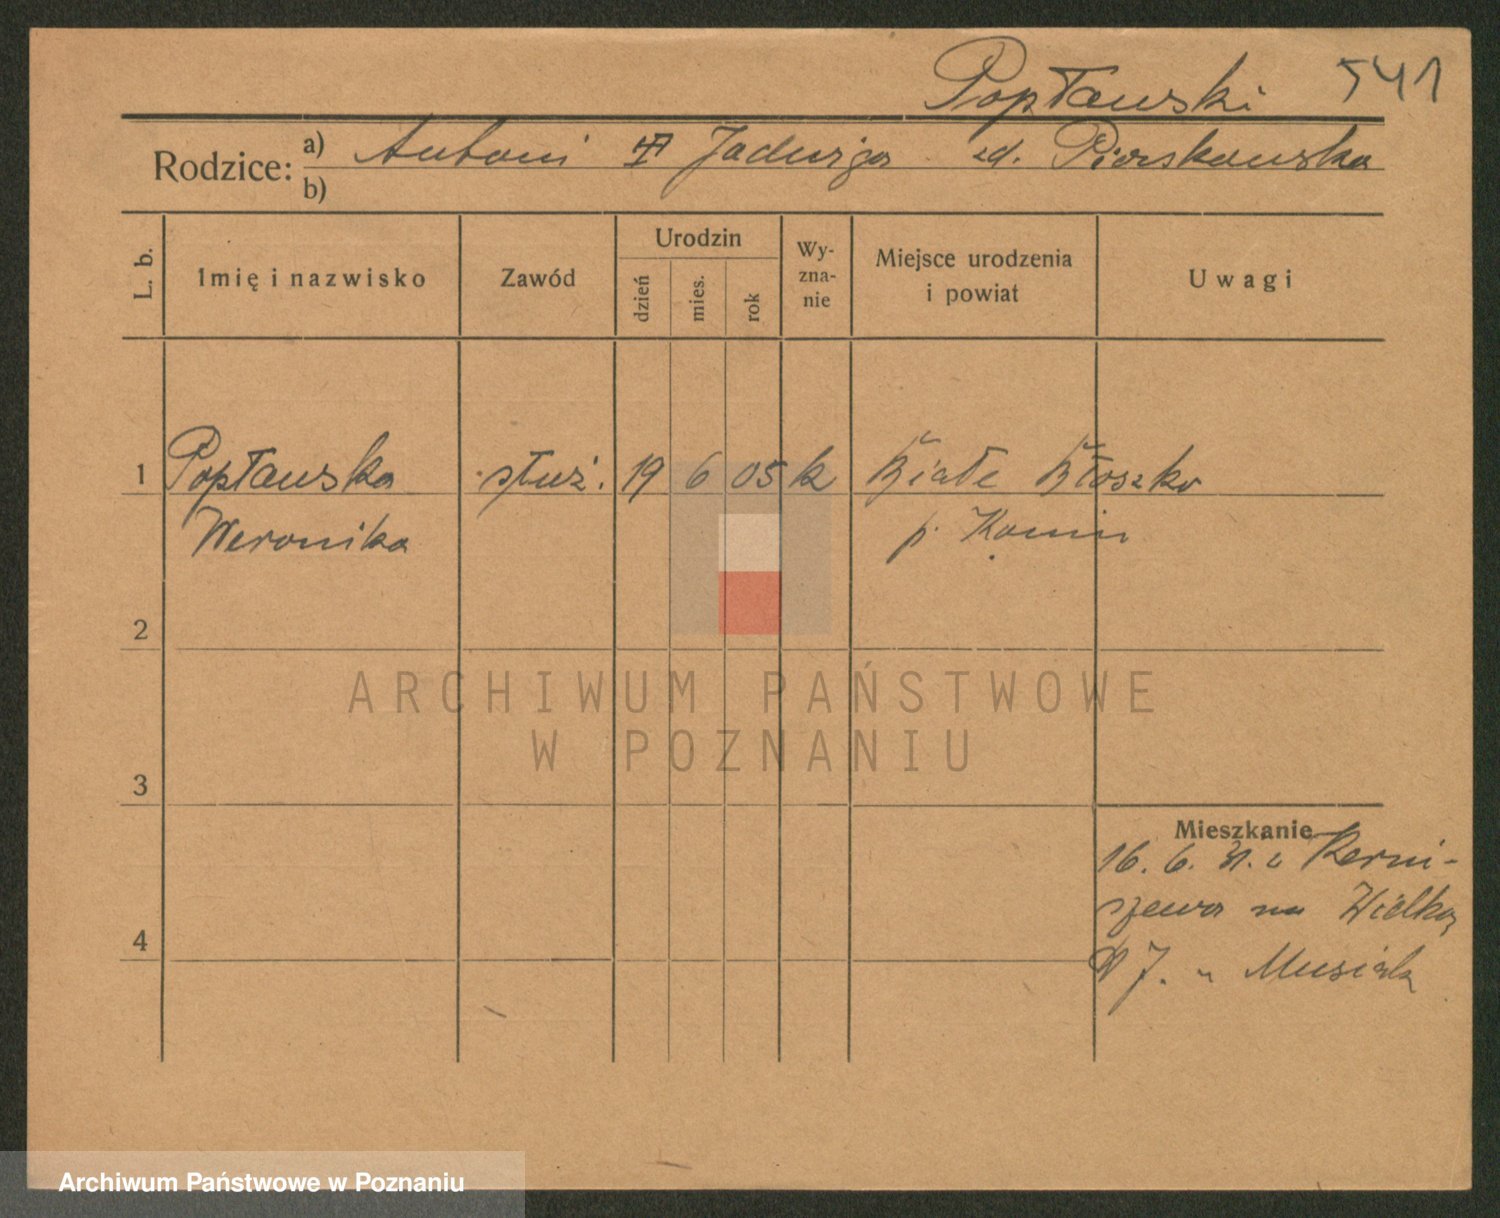 Popławski 541
Rodzice: a) Antoni Jadwiga zd. Piorskowska
b)
L. b. Imię i nazwisko Zawód Urodzin dzień mies. rok Wy-zna-nie Miejsce urodzenia i powiat Uwagi
1 Popławska służ. 19 6 05 k Białe Błoszko
Weronika p. Konin
2
ARCHIWUM PAŃSTWOWE
W POZNANIU
3
Mieszkanie
16. 6. 31. z
na Wielką
4
J. Musiała
Archiwum Państwowe w Poznaniu